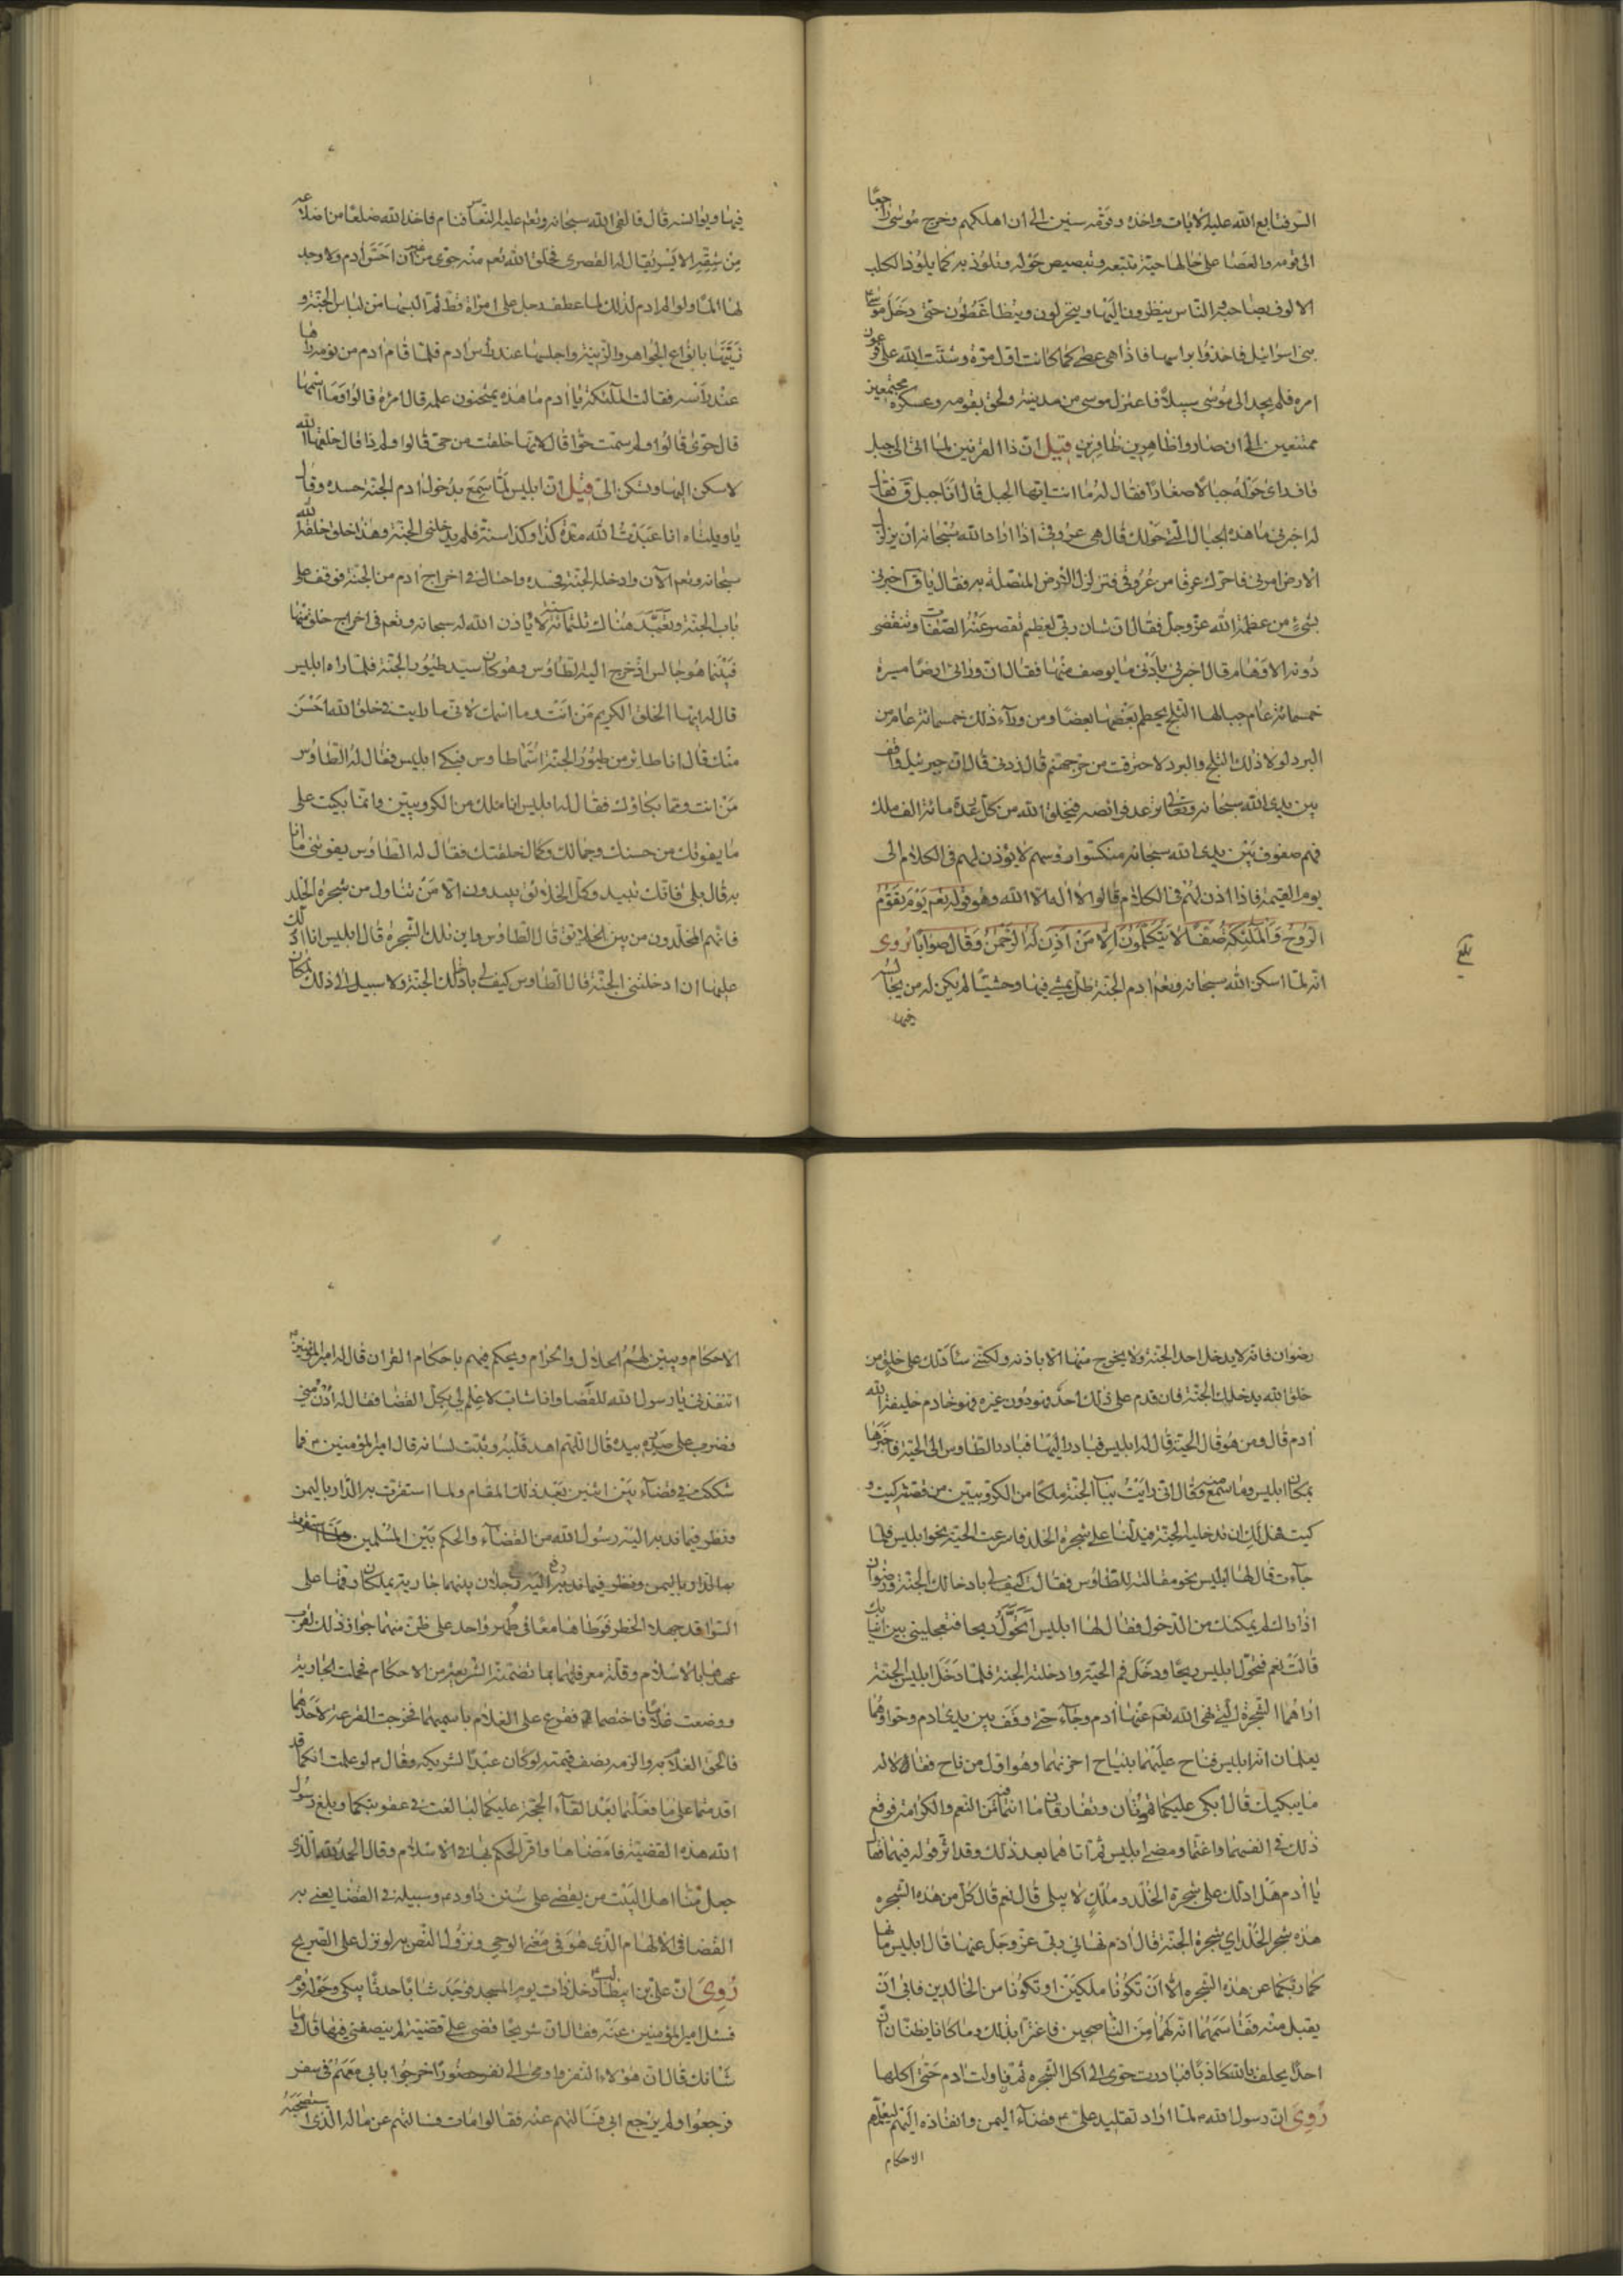 السر فتابع الله عليه الايات واخذه وقومه سنين الى ان اهلكهم وخرج موسى راجعا
الى قومه والعصا على حالها حية تتبعه وتبصبص حوله وتلوذ به كما يلوذ الكلب
الالوف بصاحبه والناس ينظرون اليها وينخزلون ويتضاغطون حتى دخل موسى
بنى اسرائيل فاخذ براسها فاذا هى عصى كما كانت اول مرة وشتت الله على فرعون
امره فلم يجد الى موسى سبيلا فاعتزل موسى من مدينته ولحق بقومه وعسكره مجتمعين
ممتنعين الى ان صاروا ظاهرين ظافرين قيل ان ذا القرنين لما اتى الى جبل
قاف راى حوله جبالا صغارا فقال له ما انت ايها الجبل قال انا جبل ق فقال
له اخبرنى ما هذه الجبال التى حولك قال هى عروقى اذا اراد الله سبحانه ان يزلزل
الارض امرنى فاحرك عرقا من عروقى فتزلزل الارض المتصلة به فقال يا ق اخبرنى
بشىء من عظمة الله عز وجل فقال ان شان ربى لعظيم تقصر عنه الصفات وتنقضى
دونه الاوهام قال اخبرنى بادنى ما يوصف منها فقال ان ورائى ارضا مسيرة
خمسمائة عام جبالها الثلج يحطم بعضها بعضا ومن وراء ذلك خمسمائة عام من
البرد لولا ذلك الثلج والبرد لاحترقت من حر جهنم قال زدنى قال ان جبرئيل واقف
بين يدى الله سبحانه وتعالى ترعد فرائصه فيخلق الله من كل رعدة مائة الف ملك
فهم صفوف بين يدى الله سبحانه منكسوا رؤسهم لا يؤذن لهم فى الكلام الى
يوم القيمة فاذا اذن لهم فى الكلام قالوا لا اله الا الله وهو قوله تعم يوم يقوم
الروح والملئكة صفا لا يتكلمون الا من اذن له الرحمن وقال صوابا روى
بلغ
انه لما اسكن الله سبحانه وتعم ادم الجنة ظل يمشى فيها وحشيا لم يكن له من يجالسه
فيها
فيها ويؤانسه قال فالقى الله سبحانه وتعم عليه النعاس فنام فاخذ الله ضلعا من اضلاعه
من شقه الايسر يقال له القصرى فخلق الله تعم منه حوى من غير ان احس ادم ولا وجد
لها الما ولو الم ادم لذلك لما عطف رجل على امراة قط ثم البسها من لباس الجنة و
زينها بانواع الجواهر والزينة واجلسها عند راس ادم فلما قام ادم من نومه راها
عند راسه فقالت الملئكة يا ادم ما هذه يمتحنون علمه قال امرة قالوا وما اسمها
قال حوى قالوا ولم سميت حوا قال لانها خلقت من حى قالوا ولم ذا قال خلقها الله
لاسكن اليها وتسكن الى قيل ان ابليس لما سمع بدخول ادم الجنة حسده وقال
يا ويلتاه انا عبدت الله منذ كذا وكذا سنة فلم يدخلنى الجنة وهذا خلق خلقه الله
سبحانه وتعم الآن وادخله الجنة فحسده واحتال فى اخراج ادم من الجنة فوقف على
باب الجنة وتعبد هناك ثلثمائة سنة لا ياذن الله له سبحانه وتعم فى اخراج خلق منها
فبينما هو جالس اذ خرج اليه الطاوس وهو كان سيد طيور الجنة فلما راه ابليس
قال له ايها الخلق الكريم من انت وما اسمك لانى ما رايت فى خلق الله احسن
منك قال انا طائر من طيور الجنة اسمى طاوس فبكى ابليس فقال له الطاوس
من انت ومما بكاؤك فقال له ابليس انا ملك من الكروبيين وانما بكيت على
ما يفوتك من حسنك وجمالك وكمال خلقتك فقال له الطاوس يفوتنى ما انا
به قال بلى فانك تبيد وكل الخلائق يبيدون الا من تناول من شجرة الخلد
فانهم المخلدون من بين الخلائق قال الطاوس واين تلك الشجرة قال ابليس انا ادلك
عليها ان ادخلتنى الجنة قال الطاوس كيف لى بادخالك الجنة ولا سبيل الى ذلك لمكان
رضوان فانه لا يدخل احد الجنة ولا يخرج منها الا باذنه ولكننى سادلك على خلق من
خلق الله يدخلك الجنة فان قدم على ذلك احد فهو دون غيره فهو خادم خليفة الله
ادم قال ومن هو قال الحية قال له ابليس فبادر اليها فبادر الطاوس الى الحية فاخبرها
بمكان ابليس وما سمع منه وقال انى رايت بباب الجنة ملكا من الكروبيين من قصته كيت و
كيت فهل لك ان تدخليه الجنة فيدلنا على شجرة الخلد فاسرعت الحية نحو ابليس فلما
جاءت قال لها ابليس نحو مقالته للطاوس فقالت كيف لى بادخالك الجنة ورضوان
اذا راك لم يمكنك من الدخول فقال لها ابليس اتحول ريحا فتجعلينى بين انيابك
قالت نعم فتحول ابليس ريحا ودخل فم الحية وادخلته الجنة فلما دخل ابليس الجنة
اراهما الشجرة التى نهى الله تعم عنها ادم وجاء حتى وقف بين يدى ادم وحوا وهما
يعلمان انه ابليس فناح عليهما بنياح احزنهما وهو اول من ناح فقالا له
ما يبكيك قال ابكى عليكما تموتان وتفارقان ما انتما فيه من النعم والكرامة فوقع
ذلك فى انفسهما واغتما ومضى ابليس ثم اتاهما بعد ذلك وقد اثر قوله فيهما فقال
يا ادم هل ادلك على شجرة الخلد وملك لا يبلى قال نعم قال كل من هذه الشجرة
هذه شجر الخلد اى شجرة الجنة قال ادم نهانى ربى عز وجل عنها قال ابليس ما نها
كما ربكما عن هذه الشجرة الا ان تكونا ملكين او تكونا من الخالدين فابى ان
يقبل منه فقاسمهما انه لهما من الناصحين فاغترا بذلك وما كانا يظنان ان
احدا يحلف بالله كاذبا فبادرت حوى الى اكل الشجرة ثم ناولت ادم حتى اكلها
روى ان رسول الله م لما اراد تقليد على م قضاء اليمن وانفاذه اليهم ليعلمهم
الاحكام
الاحكام ويبين لهم الحلال والحرام ويحكم فيهم باحكام القران قال له امير المؤمنين م
اتنفذنى يا رسول الله للقضا وانا شاب لا علم لى بكل القضا فقال له ادن منى
فضرب على صدره بيده قال اللهم اهد قلبه وثبت لسانه قال امير المؤمنين م فما
شككت فى قضاء بين اثنين بعد ذلك المقام ولما استقرت به الدار باليمن
ونظر فيما ندبه اليه رسول الله من القضاء والحكم بين المسلمين
به الدار باليمن ونظر فيما ندبه اليه رفع رجلان بينهما جارية يملكان رقها على
السوا قد جهلا الخطر فوطئاها معا فى طهر واحد على ظن منهما جواز ذلك لقرب
عهدهما بالاسلام وقلة معرفتهما بما تضمنته الشريعة من الاحكام فحملت الجارية
ووضعت غلاما فاختصما فيه فقرع على الغلام باسميهما فخرجت القرعة لاحدهما
فالحق الغلام به والزمه بنصف قيمته لو كان عبدا لشريكه وقال م لو علمت انكما قد
اقدمتما على ما فعلتما بعد القاء الحجة عليكما لبالغت فى عقوبتكما وبلغ رسول
الله هذه القضية فامضاها واقر الحكم بها فى الاسلام وقال الحمد لله الذى
جعل منا اهل البيت من يقضى على سنن داود م وسبيله فى القضا يعنى به
القضا فى الالهام الذى هو فى معنى الوحى ونزول النص به لو نزل على الصريح
روى ان على بن ابيطالب م دخل ذات يوم المسجد فوجد شابا حدثا يبكى وحوله قوم
فسئل امير المؤمنين عنه فقال ان شريحا قضى على قضية لم ينصفنى فيها قال وما
شانك قال ان هؤلاء النفر واومى الى نفر حضور اخرجوا بابى معهم فى سفر
فرجعوا ولم يرجع ابى فسالتهم عنه فقالوا مات فسالتهم عن ماله الذى استصحبه